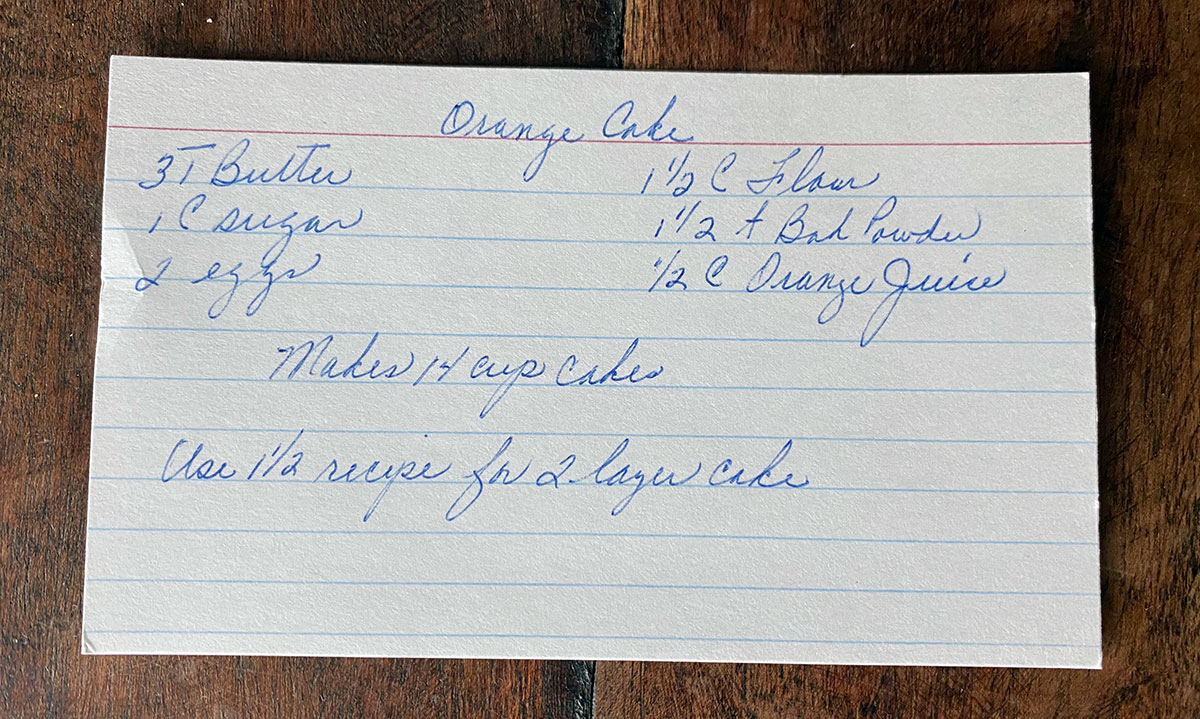 Orange Cake
3T Butter 1 1/2 C Flour
1 C sugar 1 1/2 t Bak Powder
2 eggs 1/2 C Orange Juice
Makes 14 cup cakes
Use 1 1/2 recipe for 2 layer cake